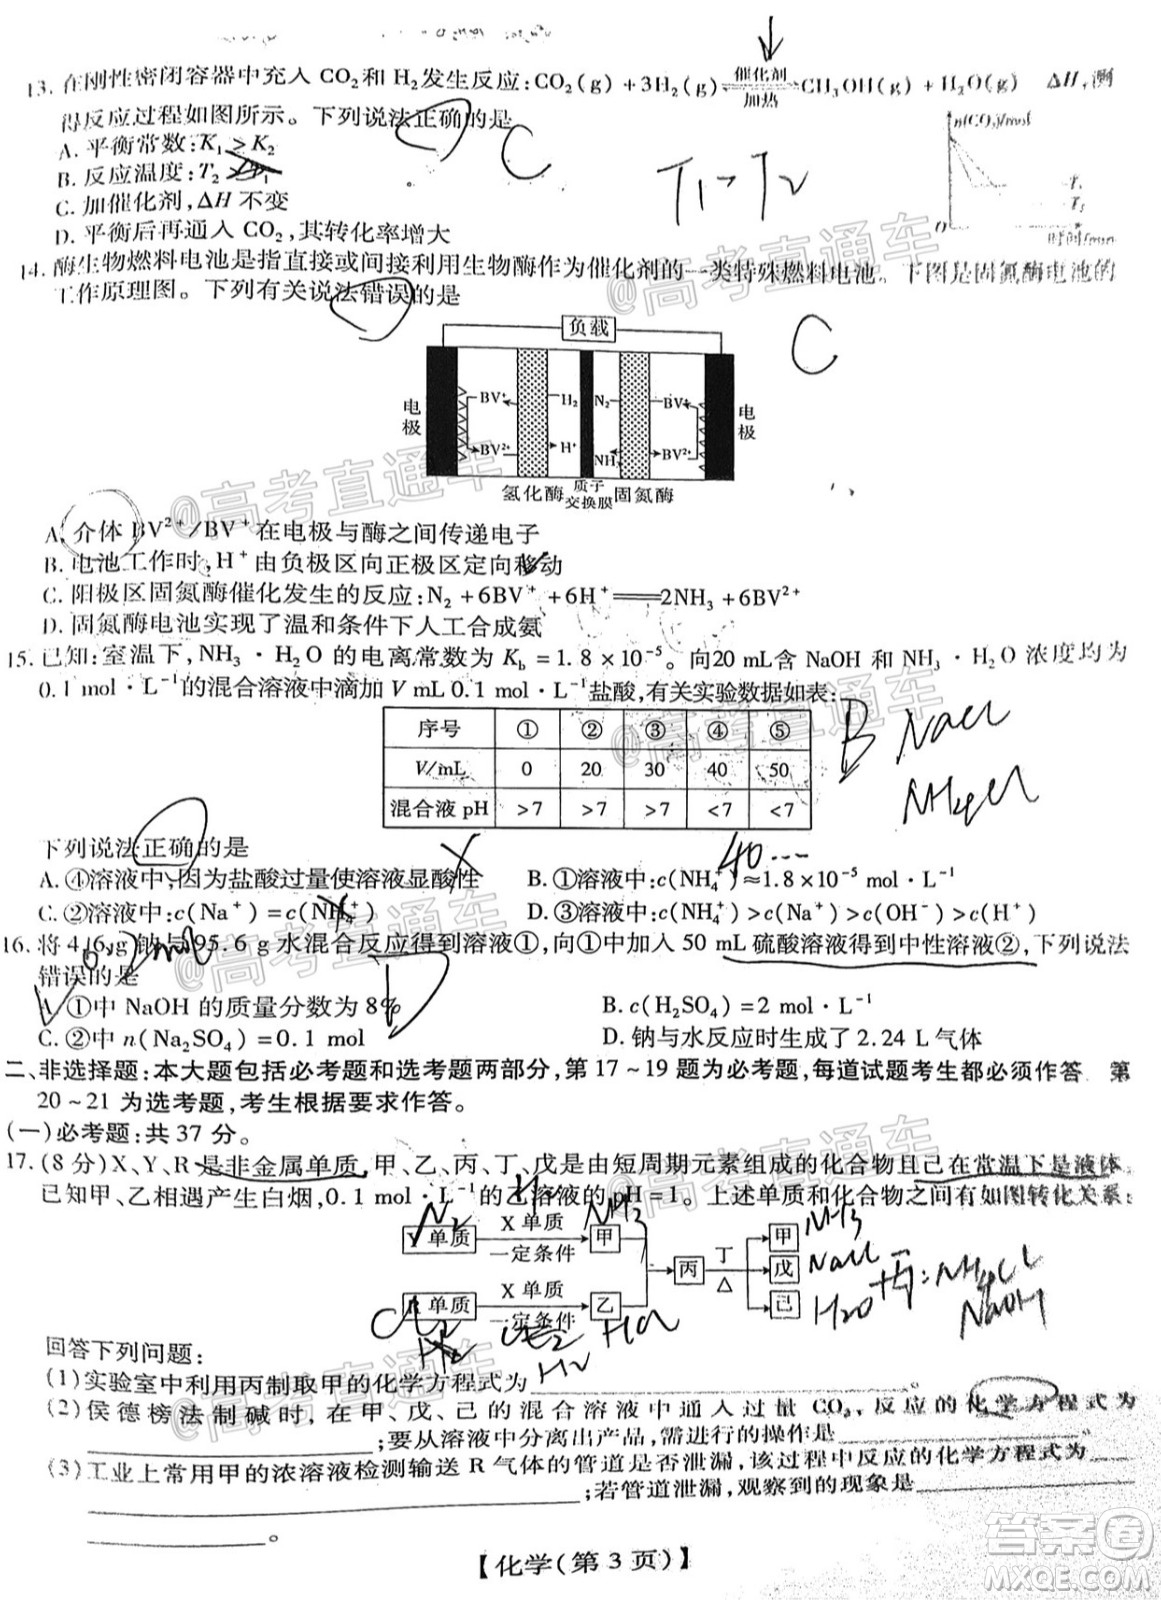 13. 在刚性密闭容器中充入 CO₂和 H₂发生反应:CO₂(g)+3H₂(g)⇌CH₃OH(g)+H₂O(g) ΔH,测
催化剂
加热
得反应过程如图所示。下列说法正确的是
C
A. 平衡常数:K₁>K₂
B. 反应温度:T₂>T₁
C. 加催化剂,ΔH 不变
D. 平衡后再通入 CO₂,其转化率增大
n(CO₂)/mol
O
时间/min
14. 酶生物燃料电池是指直接或间接利用生物酶作为催化剂的一类特殊燃料电池。下图是固氮酶电池的
工作原理图。下列有关说法错误的是
C
负载
电极
BV⁺
H₂
N₂
BV⁺
电极
BV²⁺
H⁺
NH₃
BV²⁺
氢化酶
质子
交换膜
固氮酶
A. 介体 BV²⁺/BV⁺在电极与酶之间传递电子
B. 电池工作时,H⁺由负极区向正极区定向移动
C. 阳极区固氮酶催化发生的反应:N₂+6BV⁺+6H⁺══2NH₃+6BV²⁺
D. 固氮酶电池实现了温和条件下人工合成氨
15. 已知:室温下,NH₃·H₂O 的电离常数为 K_b=1.8×10⁻⁵。向20 mL含 NaOH 和 NH₃·H₂O 浓度均为
0.1 mol·L⁻¹的混合溶液中滴加 V mL 0.1 mol·L⁻¹盐酸,有关实验数据如表:
序号 ① ② ③ ④ ⑤
V/mL 0 20 30 40 50
混合液 pH >7 >7 >7 <7 <7
B NaCl
NH₄Cl
下列说法正确的是
A. ④溶液中,因为盐酸过量使溶液显酸性 B. ①溶液中:c(NH₄⁺)≈1.8×10⁻⁵ mol·L⁻¹
C. ②溶液中:c(Na⁺)=c(NH₄⁺) D. ③溶液中:c(NH₄⁺)>c(Na⁺)>c(OH⁻)>c(H⁺)
16. 将 4.6 g 钠与 95.6 g 水混合反应得到溶液①,向①中加入 50 mL 硫酸溶液得到中性溶液②,下列说法
错误的是
D
A. ①中 NaOH 的质量分数为 8% B. c(H₂SO₄)=2 mol·L⁻¹
C. ②中 n(Na₂SO₄)=0.1 mol D. 钠与水反应时生成了 2.24 L 气体
二、非选择题:本大题包括必考题和选考题两部分,第 17~19 题为必考题,每道试题考生都必须作答。第
20~21 为选考题,考生根据要求作答。
(一)必考题:共 37 分。
17. (8 分)X、Y、R 是非金属单质,甲、乙、丙、丁、戊是由短周期元素组成的化合物且己在常温下是液体。
已知甲、乙相遇产生白烟,0.1 mol·L⁻¹的乙溶液的 pH=1。上述单质和化合物之间有如图转化关系:
N₂
NH₃
Y 单质
X 单质
一定条件
甲
丙
丁
△
甲
戊
己
NH₃
NaCl
H₂O
丙:NH₄Cl
NaOH
R 单质
X 单质
一定条件
乙
Cl₂
HCl
H₂
回答下列问题:
(1)实验室中利用丙制取甲的化学方程式为 。
(2)侯德榜法制碱时,在甲、戊、己的混合溶液中通入过量 CO₂,反应的化学方程式为
;要从溶液中分离出产品,需进行的操作是 。
(3)工业上常用甲的浓溶液检测输送 R 气体的管道是否泄漏,该过程中反应的化学方程式为
;若管道泄漏,观察到的现象是
。
【化学(第 3 页)】
@高考直通车
答案圈
MXQE.COM